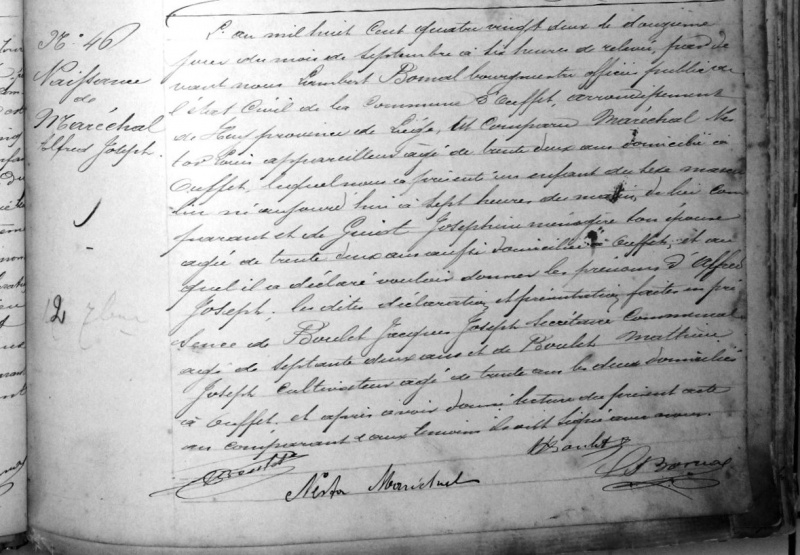 N° 46
Naissance
de
Maréchal
Alfred Joseph.
12 7bre
L'an mil huit cent quatre vingt deux le douzième
jour du mois de septembre à six heures de relevée, par de
vant nous Lambert Bomal bourgmestre officier public de
l'état Civil de la Commune d'Ouffet, arrondissement
de Huy province de Liége, est comparu Maréchal Nes
tor Louis appareilleur âgé de trente deux ans domicilié à
Ouffet, lequel nous a présenté un enfant du sexe mascu
lin né aujourd'hui à sept heures du matin, de lui com
parant et de Guiot Josephine ménagère son épouse
agée de trente deux ans aussi domiciliée à Ouffet, et au
quel il a déclaré vouloir donner les prénoms d'Alfred
Joseph. les dites déclaration et présentation faites en pré
sence de Boulet Jacques Joseph Secrétaire Communal
agé de septante deux ans et de Boulet Mathieu
Joseph Cultivateur agé de trente ans les deux domiciliés
à Ouffet, et après avoir donné lecture du présent acte
au comparant et aux temoins ils ont signé avec nous.
Nestor Maréchal
Boulet
Bomal